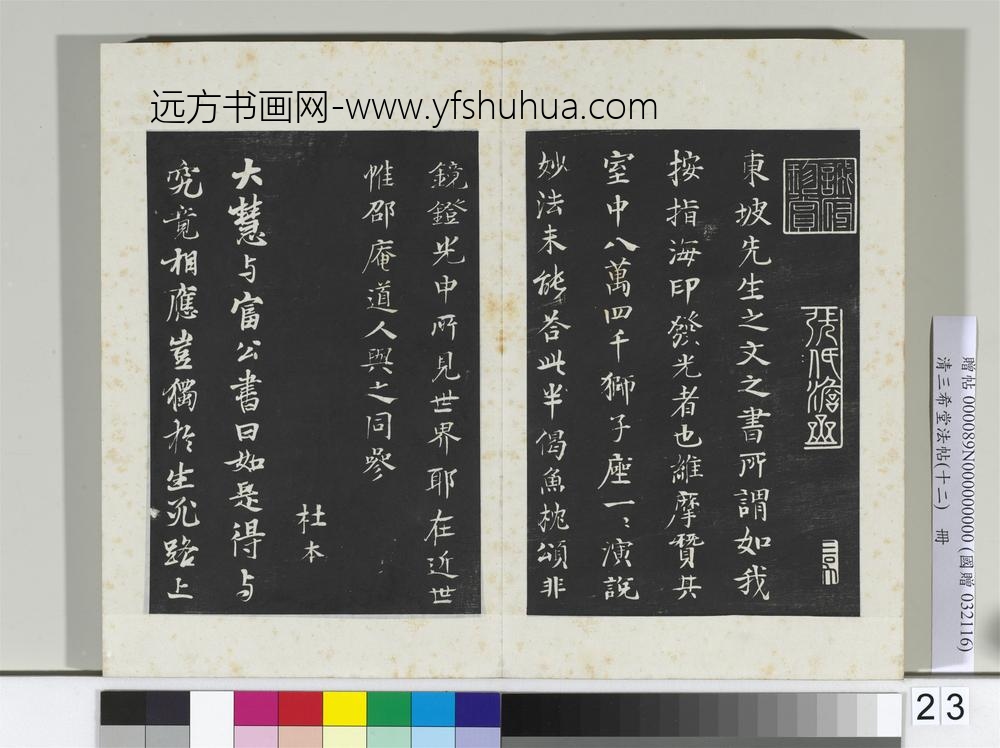 远方书画网-www.yfshuhua.com
東坡先生之文之書所謂如我
按指海印發光者也維摩贊共
室中八萬四千獅子座一〻演說
妙法未能荅此半偈魚枕頌非
鏡鐙光中所見世界耶在近世
惟邵庵道人與之同參
杜本
大慧与富公書曰如是得与
究竟相應豈獨於生死路上
贈帖 0000089N000000000 (國贈 032116)
清三希堂法帖(十二) 冊
23